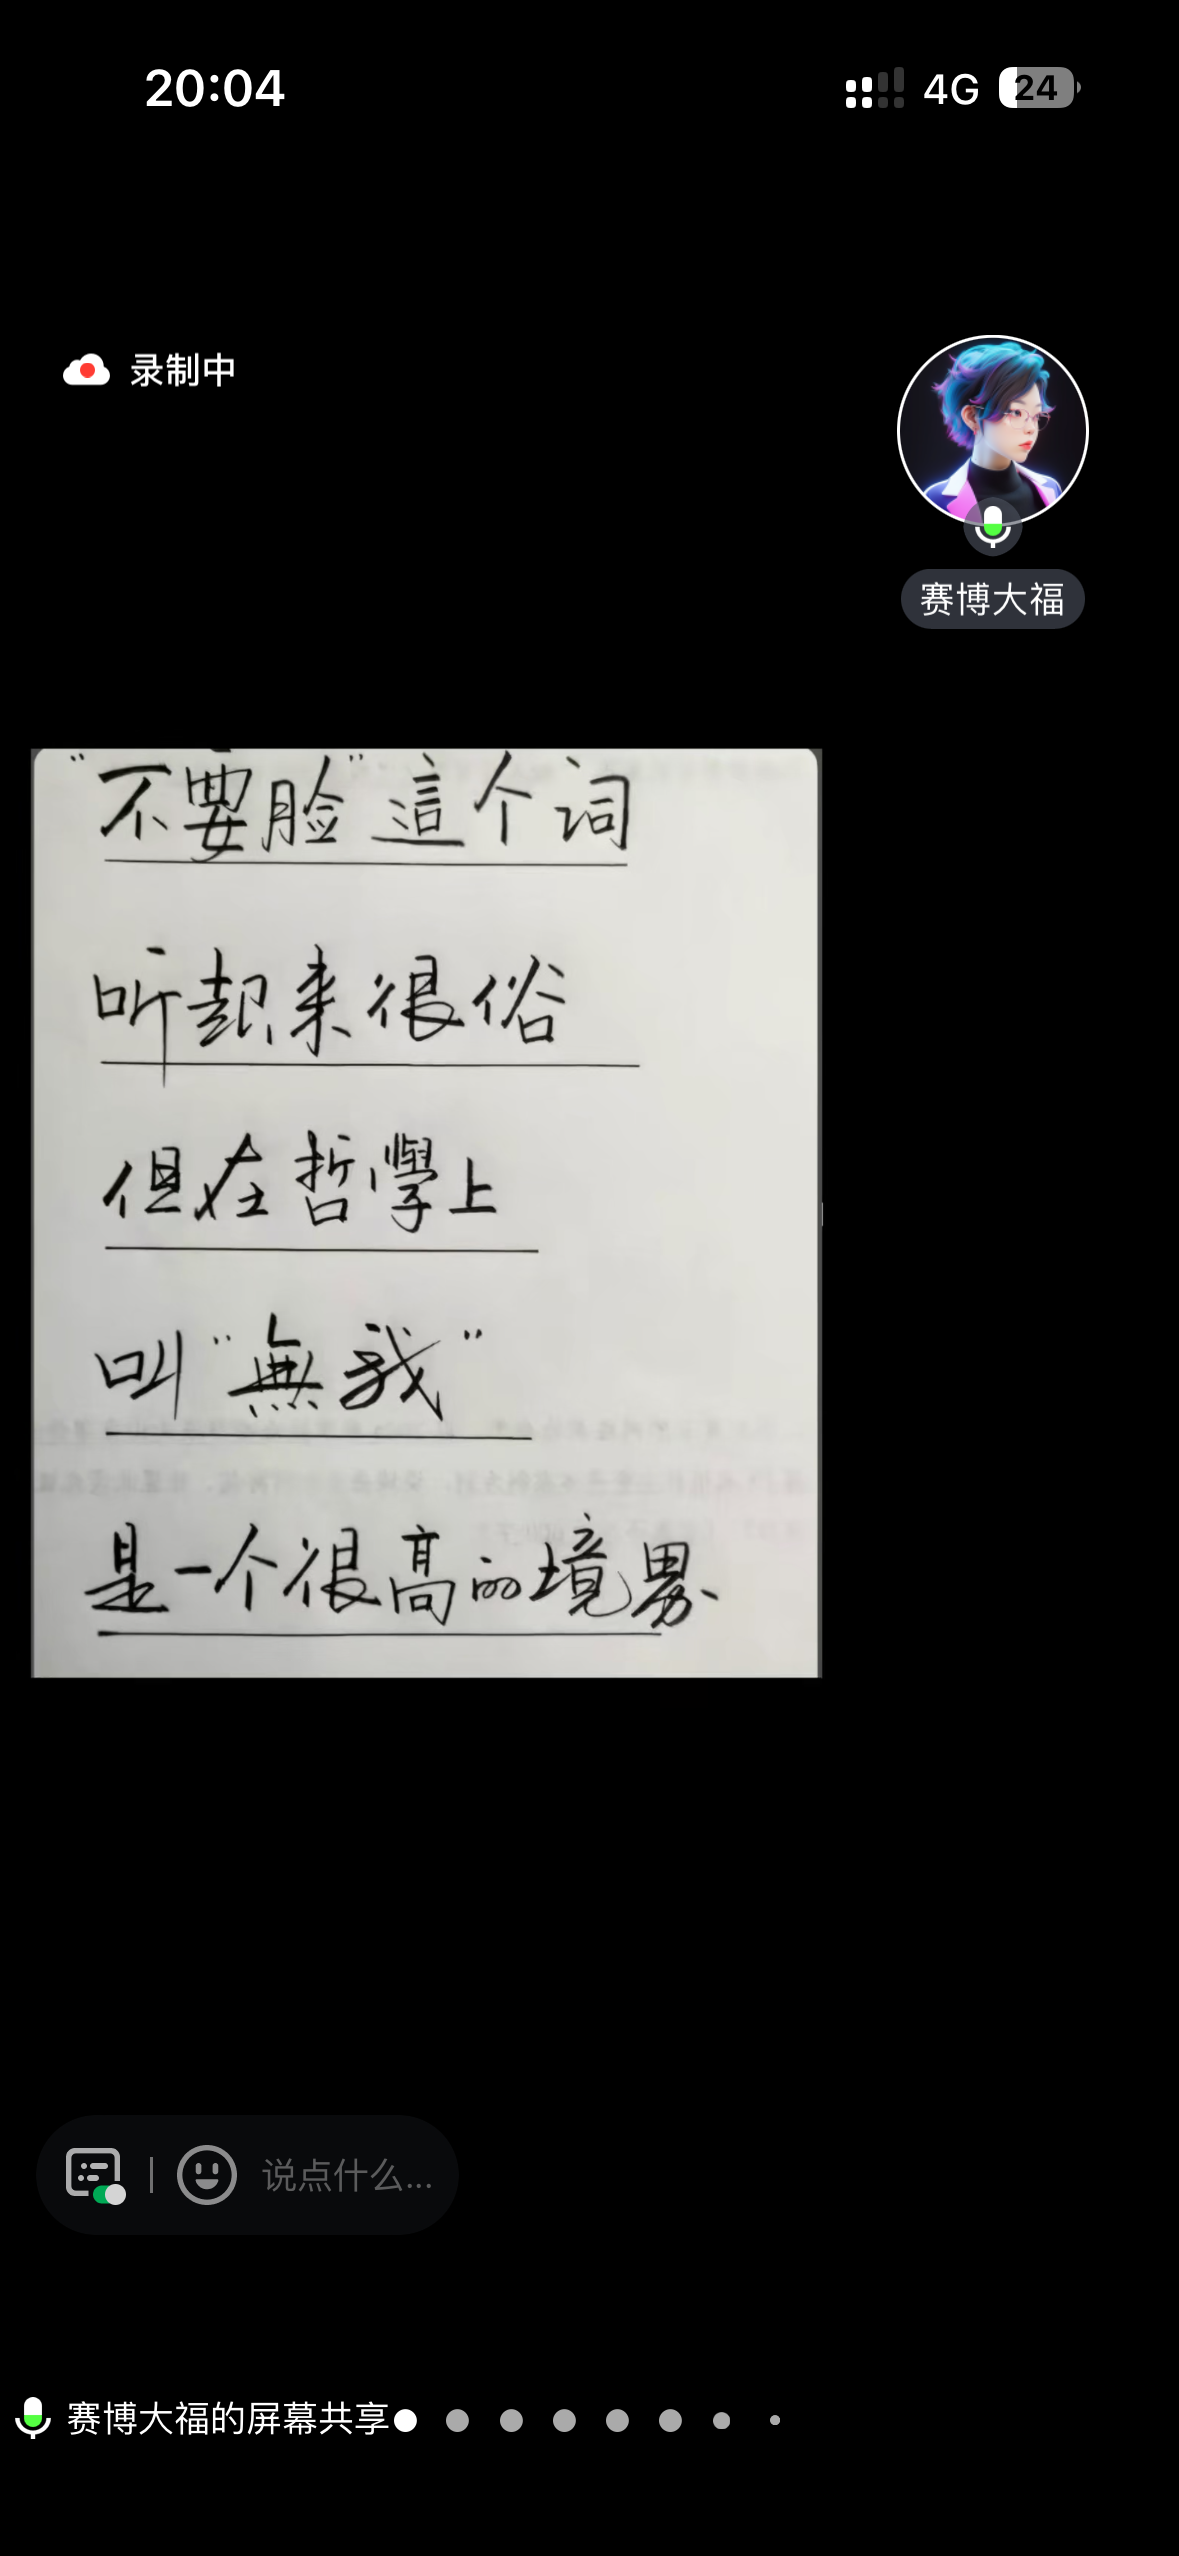 20:04
4G
24
录制中
赛博大福
"不要脸"這个词
听起来很俗
但在哲學上
叫"無我"
是一个很高的境界、
说点什么...
赛博大福的屏幕共享